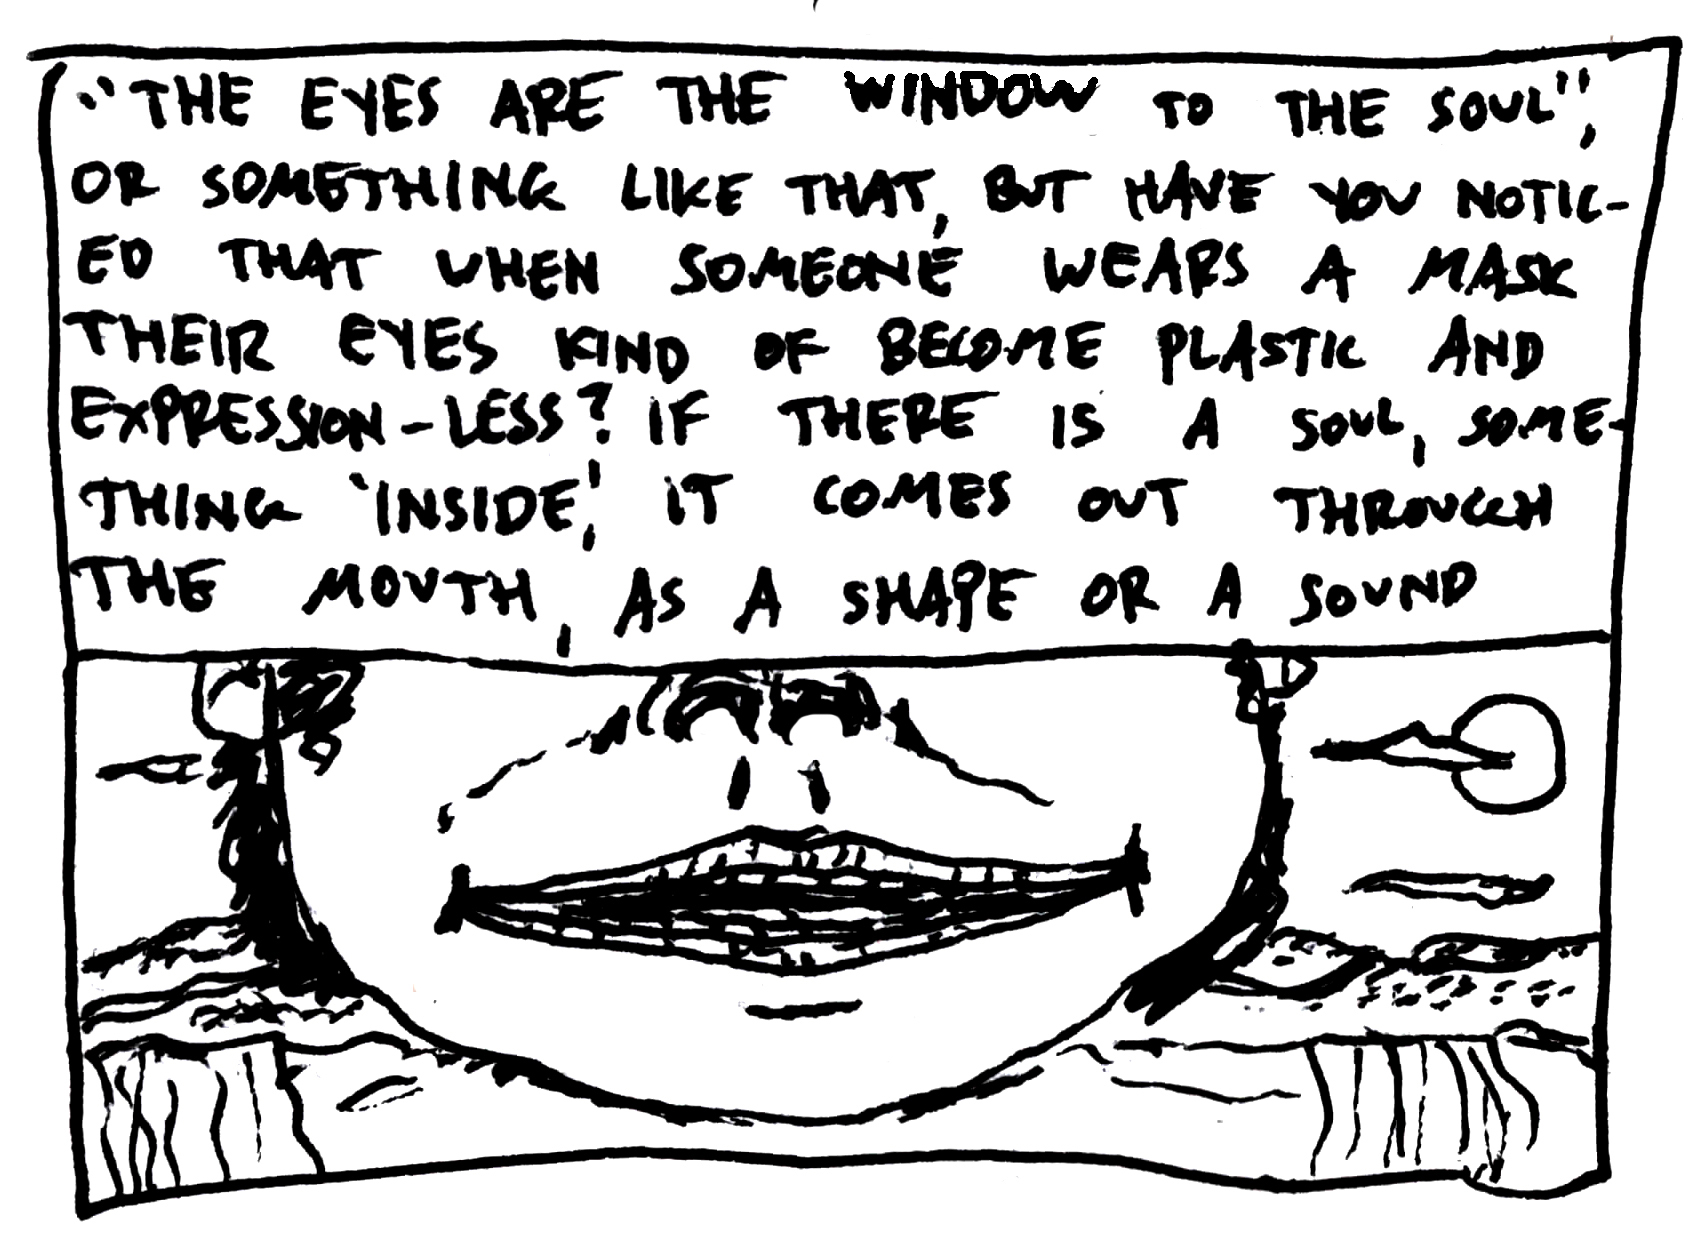 "THE EYES ARE THE WINDOW TO THE SOUL",
OR SOMETHING LIKE THAT, BUT HAVE YOU NOTIC-
ED THAT WHEN SOMEONE WEARS A MASK
THEIR EYES KIND OF BECOME PLASTIC AND
EXPRESSION-LESS? IF THERE IS A SOUL, SOME-
THING 'INSIDE', IT COMES OUT THROUGH
THE MOUTH, AS A SHAPE OR A SOUND